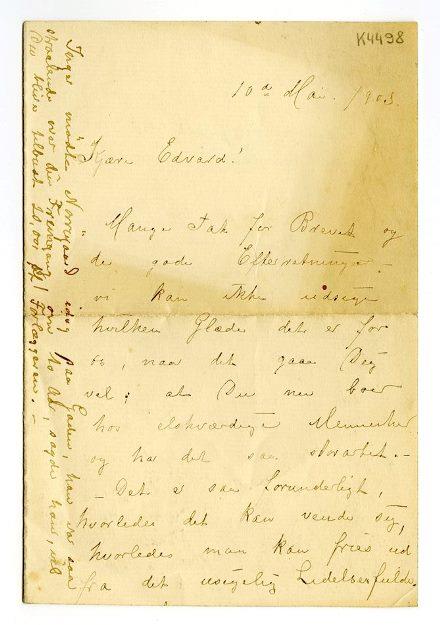 K4498
10de Mai. 1903
Kjære Edvard!
Mange Tak for Brevet og
de gode Efterretninger. –
vi kan ikke udsige
hvilken Glæde det er for
os, naar det gaar Dig
vel; at Du nu boer
hos elskværdige Mennesker
og har det saa storartet. –
– Det er saa forunderligt,
hvorledes det kan vende sig,
hvorledes man kan fries ud
fra det usigelig Lidelsesfulde
mødte Nørregaard idag paa Gaden, han var saa
straalende over din Fremgang! om 10 Aar, sagde han, vil
Du blive 20,000 Forlæggeren. –